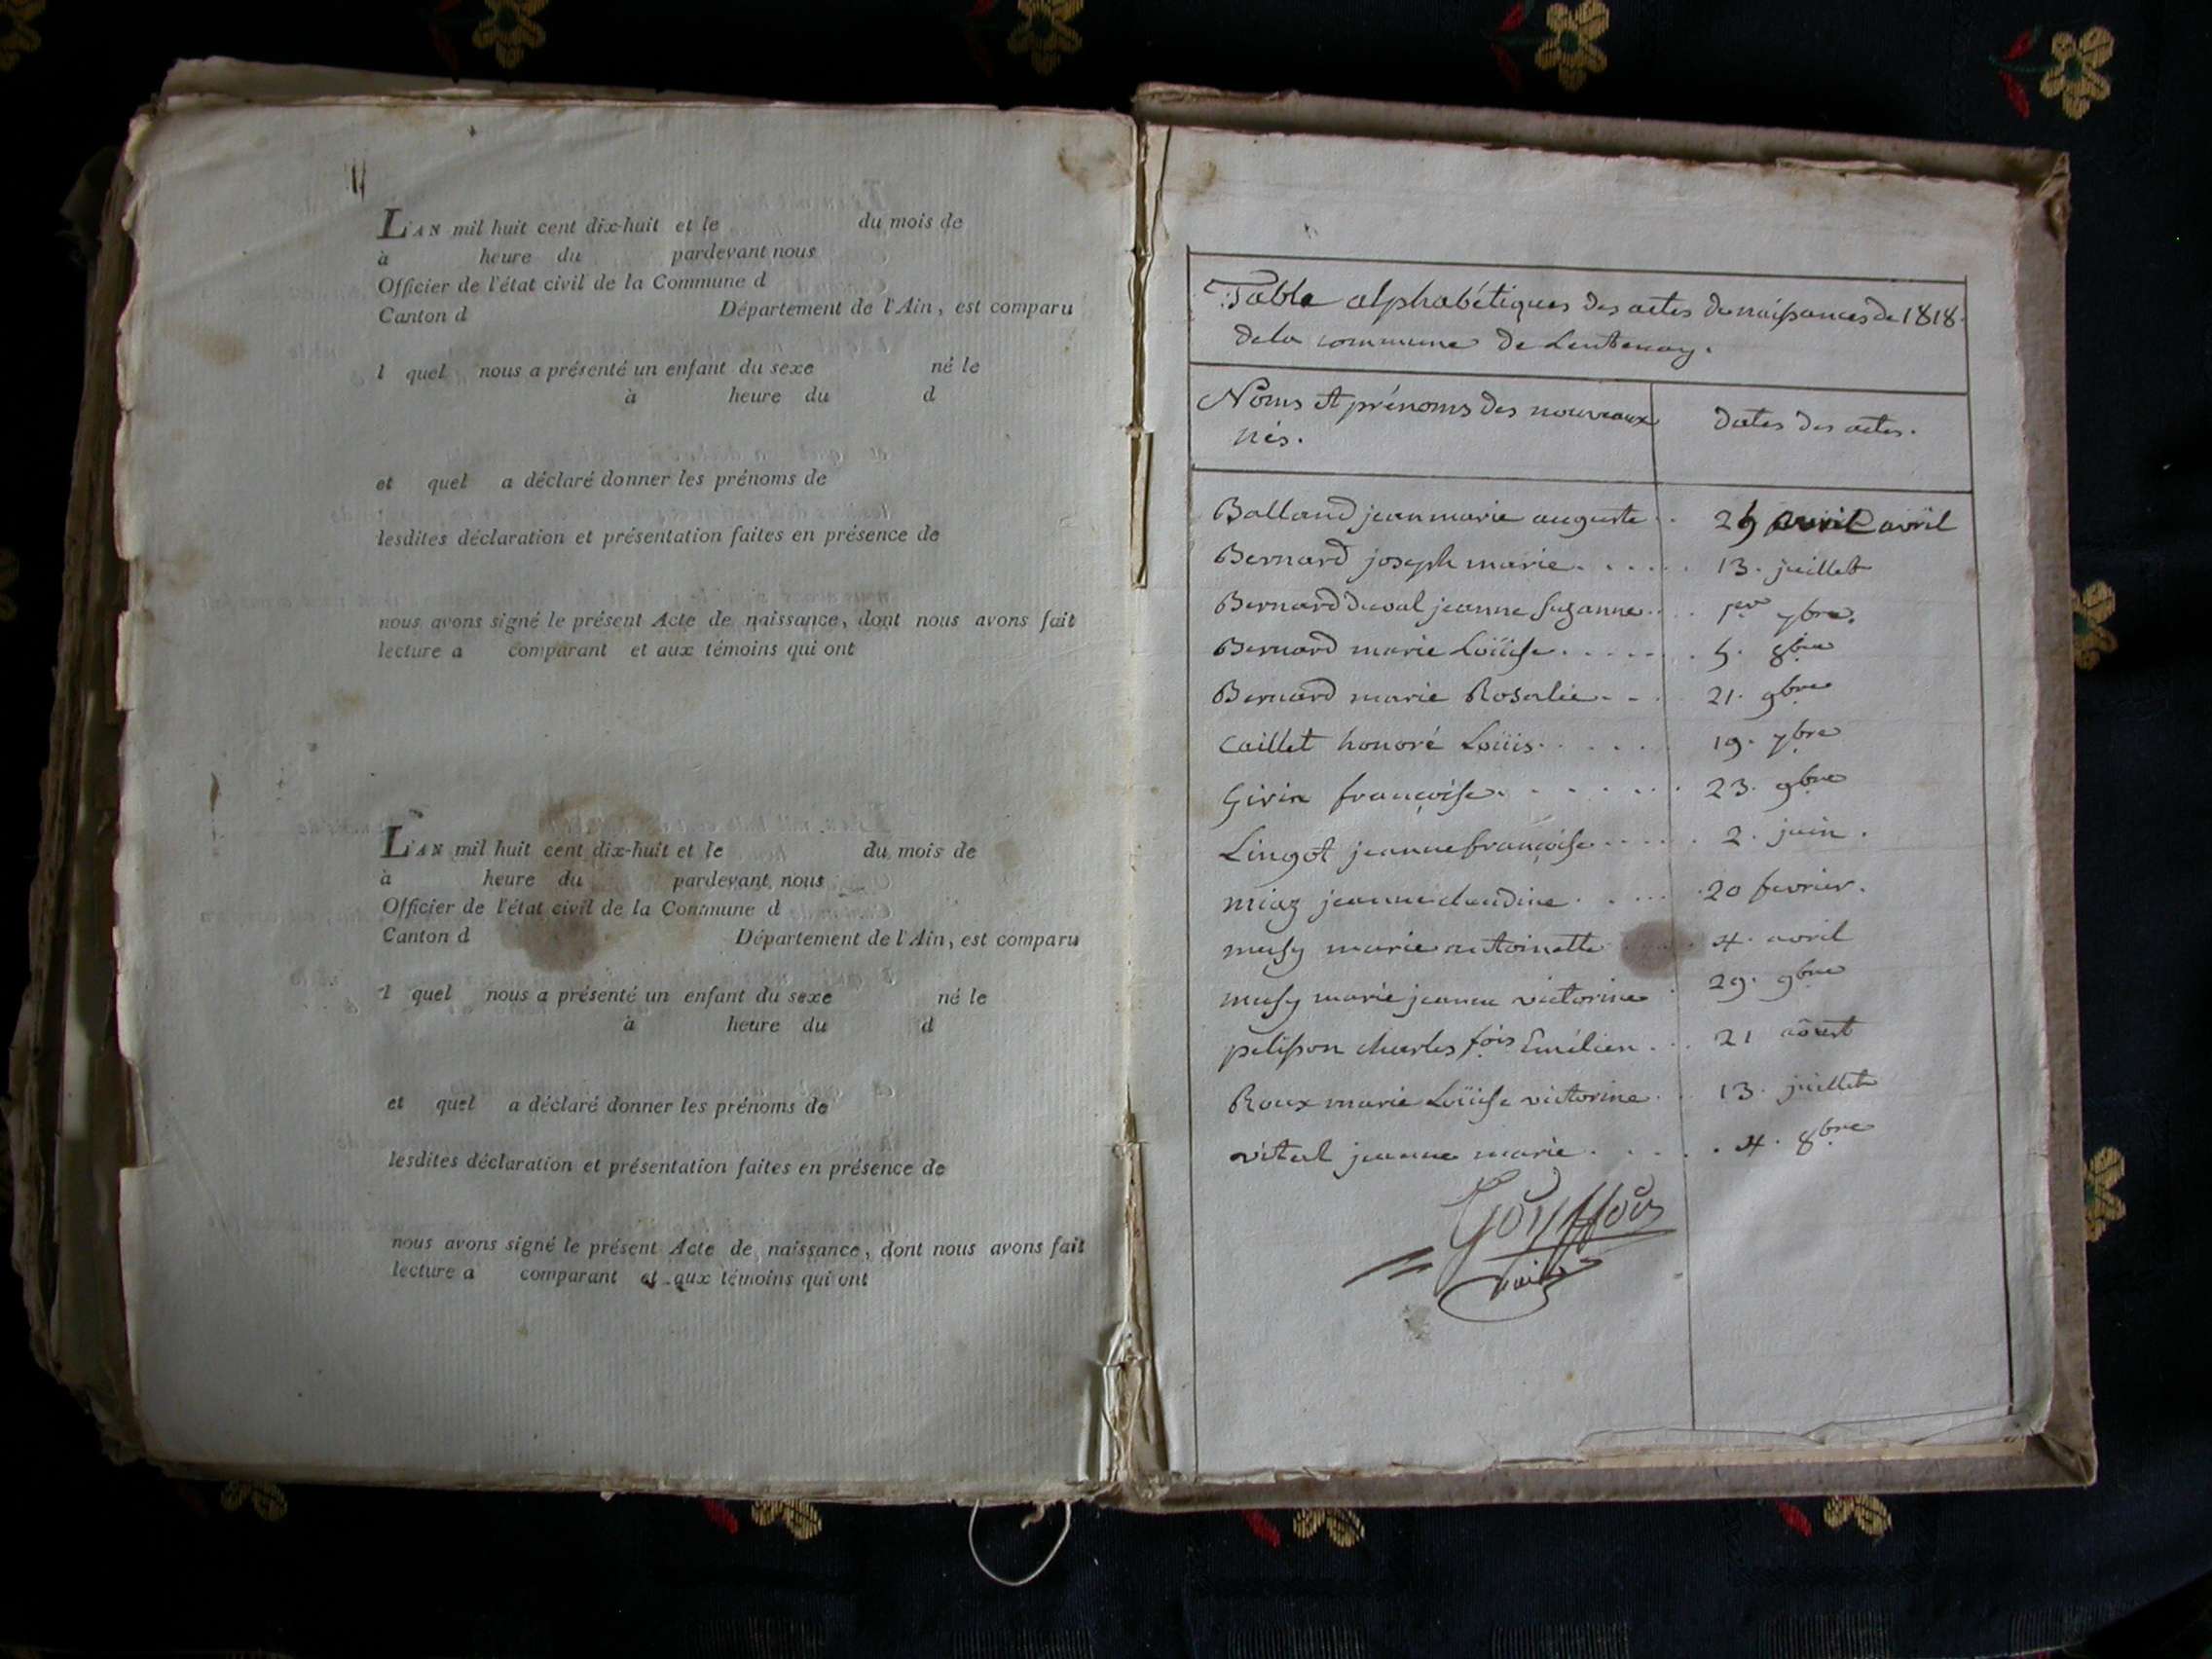 L'AN mil huit cent dix-huit et le du mois de
à heure du pardevant nous
Officier de l'état civil de la Commune d
Canton d Département de l'Ain, est comparu
l quel nous a présenté un enfant du sexe né le
à heure du d
et quel a déclaré donner les prénoms de
lesdites déclaration et présentation faites en présence de
nous avons signé le présent Acte de naissance, dont nous avons fait
lecture a comparant et aux témoins qui ont
L'AN mil huit cent dix-huit et le du mois de
à heure du pardevant nous
Officier de l'état civil de la Commune d
Canton d Département de l'Ain, est comparu
l quel nous a présenté un enfant du sexe né le
à heure du d
et quel a déclaré donner les prénoms de
lesdites déclaration et présentation faites en présence de
nous avons signé le présent Acte de naissance, dont nous avons fait
lecture a comparant et aux témoins qui ont
Table alphabétiques des actes de naissances de 1818.
dela commune de Lentenay.
Noms et prénoms des nouveaux
nés.
dates des actes.
Balland jean marie auguste . . avril avril
Bernard joseph marie . . . . . 13. juillet
Bernard duval jeanne suzanne . . . 1er 7bre.
Bernard marie Loüise . . . . . . 5. 8bre
Bernard marie Rosalie . . . 21. 9bre
Caillet honoré Loüis . . . . . 19. 7bre
Girin françoise . . . . . . 23. 9bre
Lingot jeanne françoise . . . . . 2. juin.
miaz jeanne claudine . . . . . 20 fevrier.
musy marie antoinette . . . . 4. avril
musy marie jeanne victorine . 29. 9bre
pelisson charles fois Emilien . . . 21 aôust
Roux marie Loüise victorine . . 13. juillet
vital jeanne marie . . . . . 4. 8bre